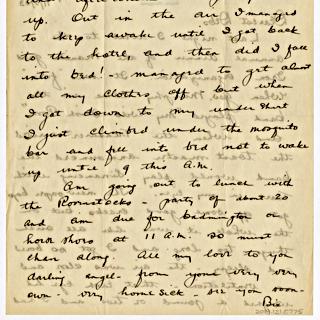 up. Out in the air I managed
to keep awake until I got back
to the hotel, and then did I fall
into bed! - managed to get almost
all my clothes off but when
I got down to my undershirt
I just climbed under the mosquito
bar and fell into bed not to wake
up until 9 this A.M.
Am going out to lunch with
the Roenstocks - party of about 20
and am due for badminton or
horse shoes at 11 A.M. so must
chen along. All my love to you
darling angel - from your very very
own - very home sick see you soon -
Bix
2019.121.0775